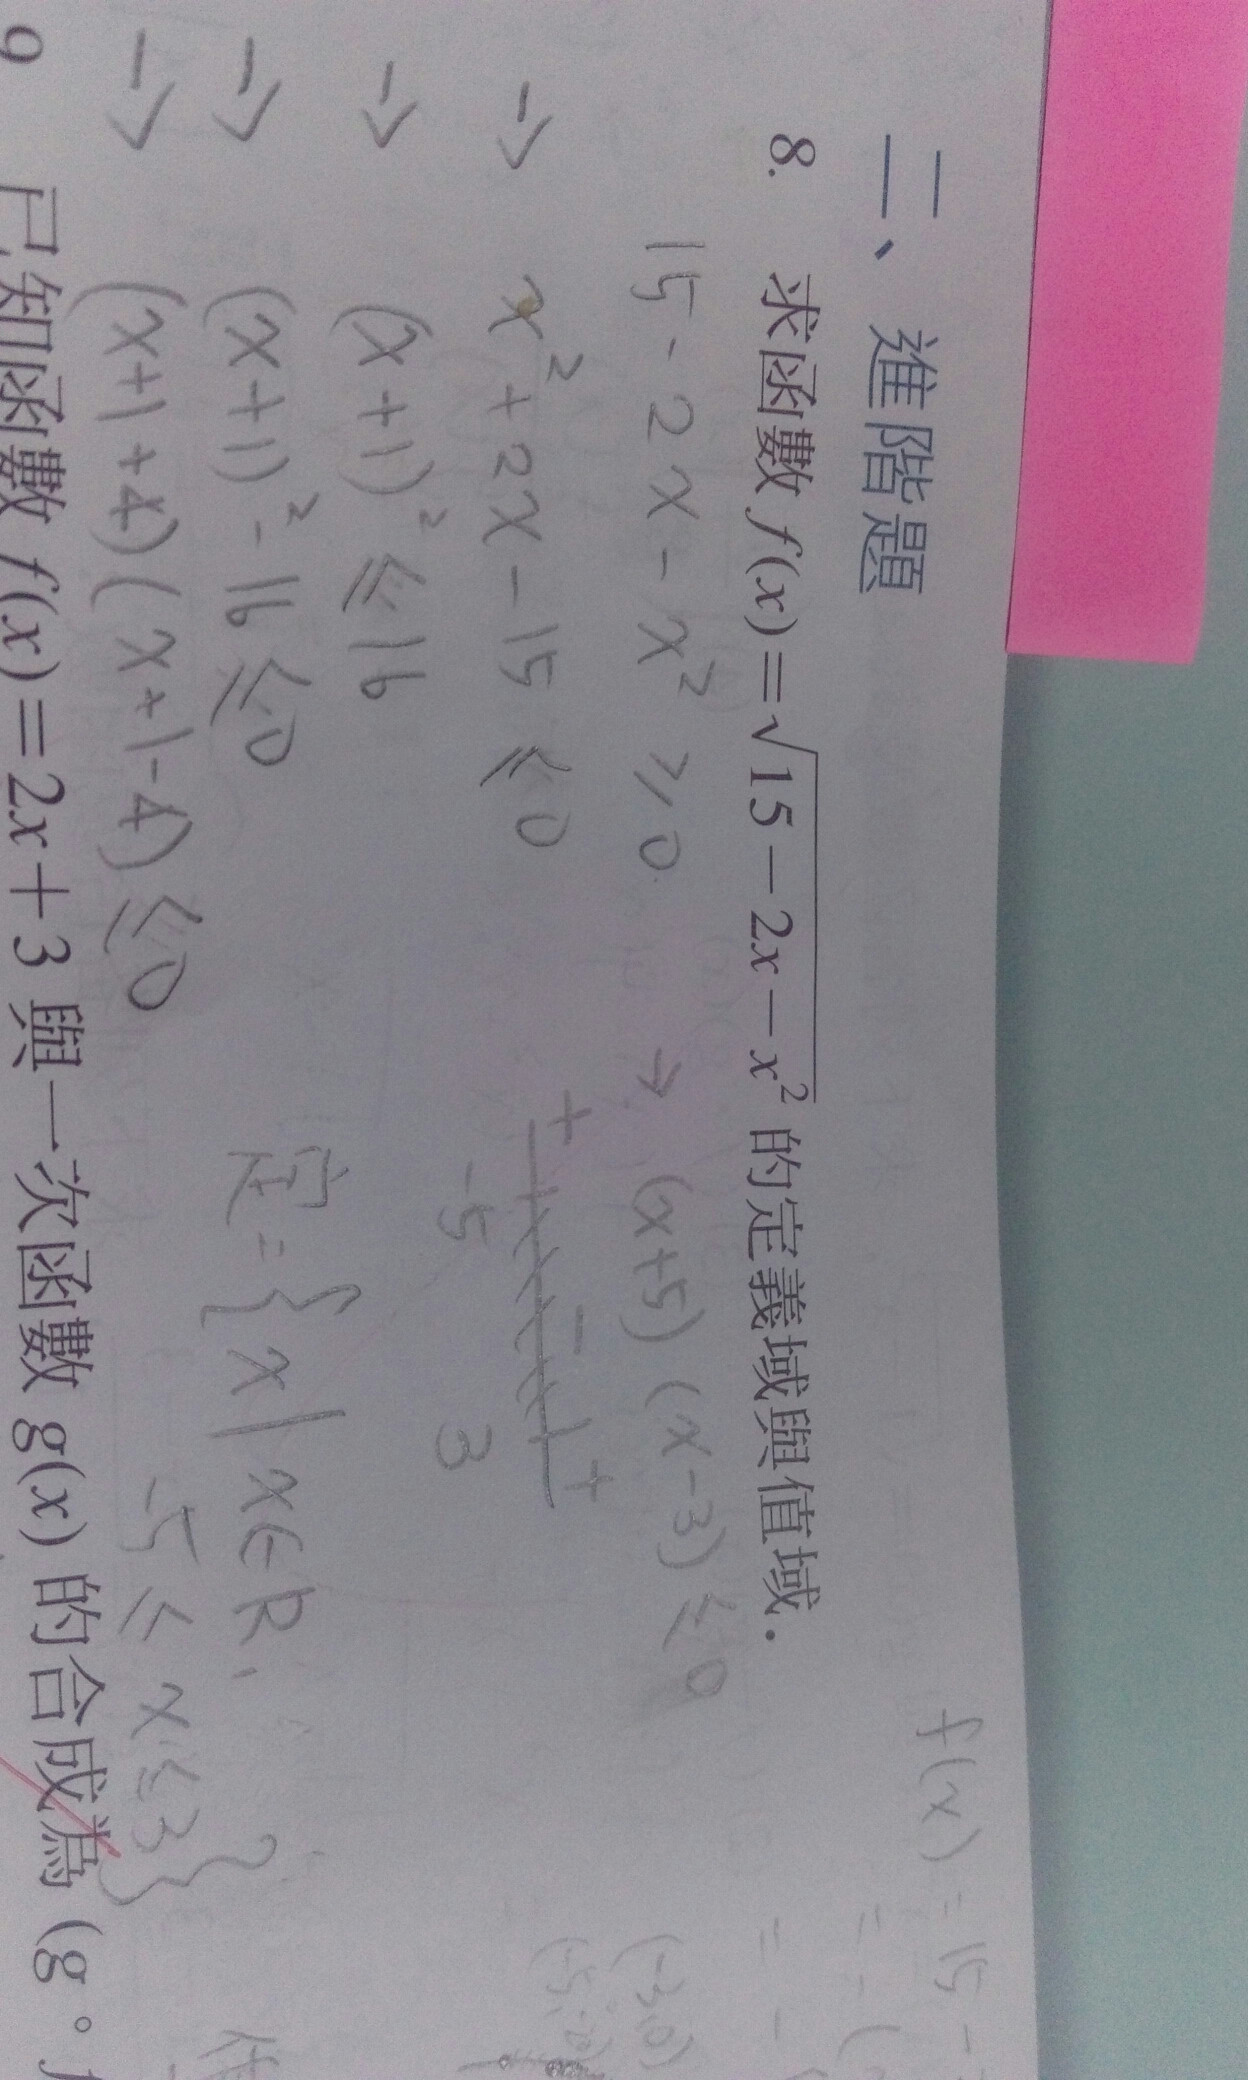 二、進階題
8. 求函數 f(x)=√15−2x−x² 的定義域與值域.
15-2x-x² ≥ 0 → (x+5)(x-3) ≤ 0
→ x²+2x-15 ≤ 0
+ - +
-5 3
→ (x+1)² ≤ 16
→ (x+1)²-16 ≤ 0
定={x|x∈R,
-5 ≤ x ≤ 3}
→ (x+1+4)(x+1-4) ≤ 0
f(x)=15-
(-3,0)
9 已知函數 f(x)=2x+3 與一次函數 g(x) 的合成為 (g∘f